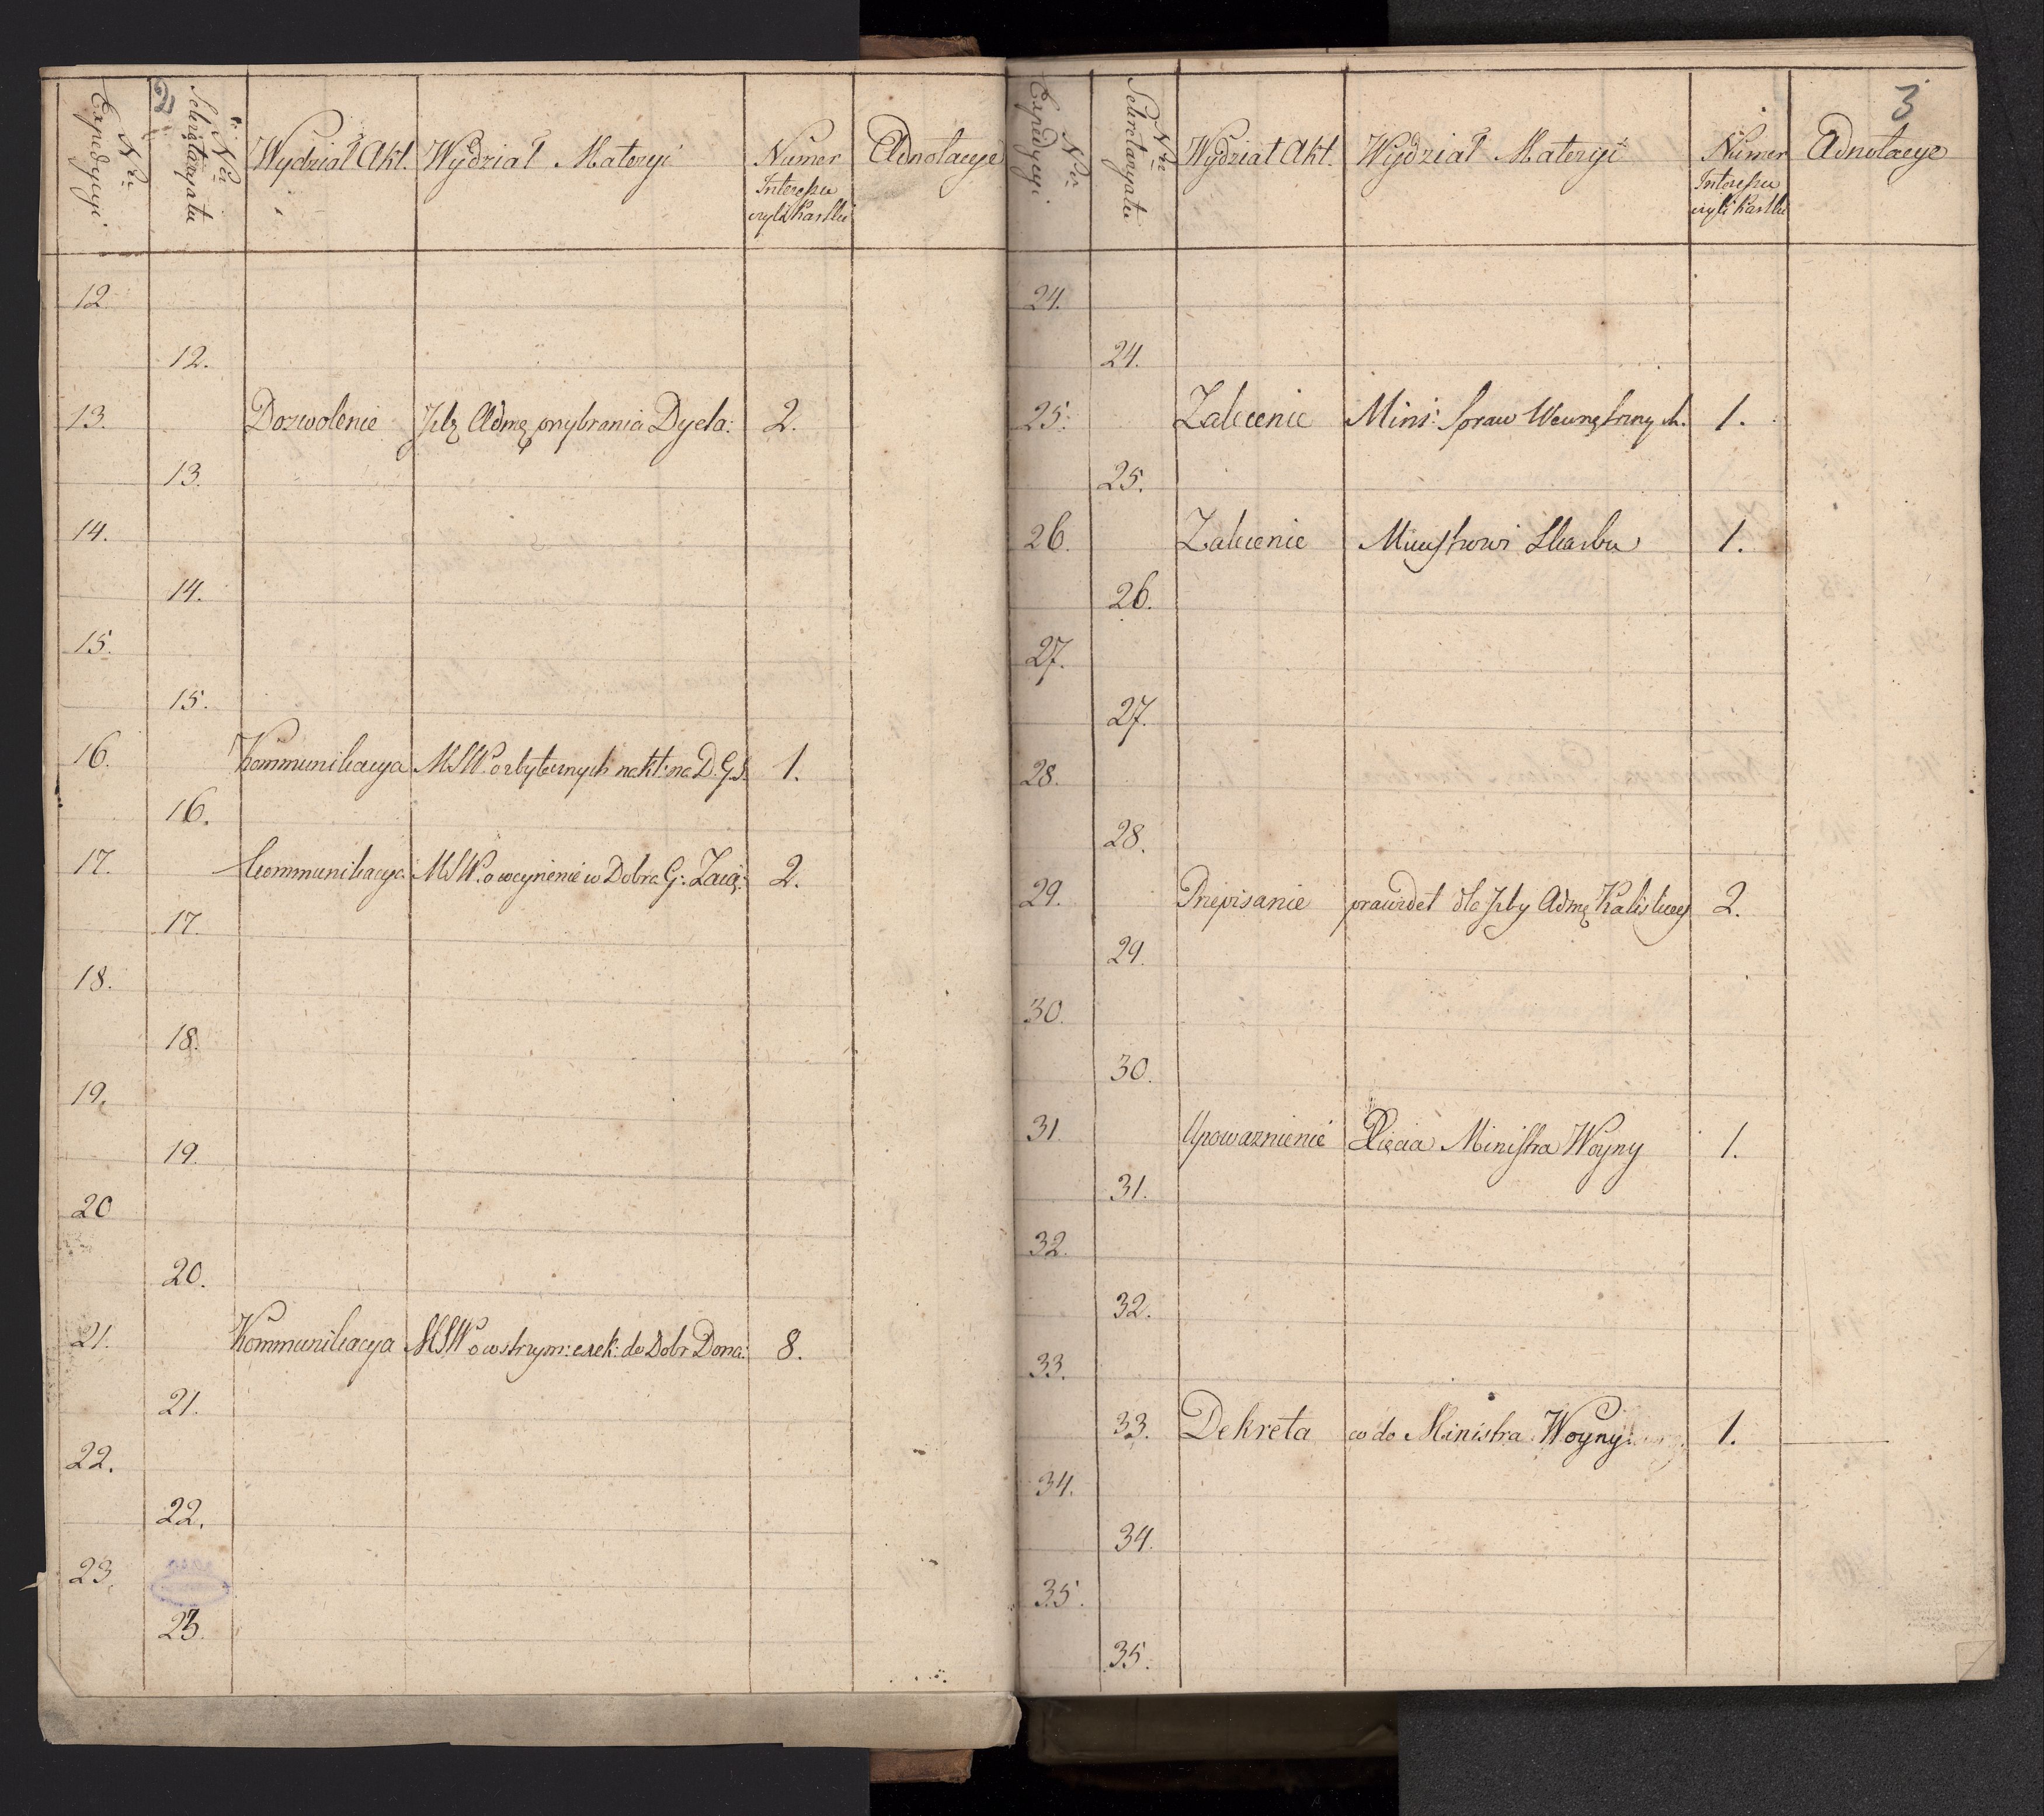 2
Nr Expedycyi. Nr Sekretaryatu Wydział Akt. Wydział Materyi Numer Interessu czyli Kartki Adnotacye
12
12.
13. Dozwolenie Izbę Admę przybrania Dyeta: 2.
13.
14.
14.
15.
15.
16. Kommunikacya MSW. o zbytecznych nakł: na D.G.S. 1.
16.
17. Kommunikacya MSW. o wcynienie w Dobra G: 2.
17.
18.
18.
19.
19.
20
20.
21. Kommunikacya MSW o wstrzym: exek: do Dobr Dona: 8.
21.
22.
22.
23.
23.
3
Nr Expedycyi. Nr Sekretaryatu Wydział Akt. Wydział Materyi Numer Interessu czyli Kartki Adnotacye
24.
24.
25. Zalecenie Mini: Spraw Wewnętrznych. 1.
25.
26. Zalecenie Ministrowi Skarbu 1.
26.
27.
27.
28.
28.
29. Przepisanie prawideł dla Izby Admę Kaliskiey 2.
29.
30.
30.
31. Upoważnienie Xięcia Ministra Woyny 1.
31.
32.
32.
33.
33. Dekreta co do Ministra Woyny 1.
34.
34.
35.
35.